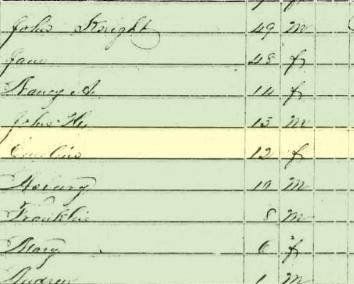 John Knight 49 M
Jane 48 f
Nancy A. 14 f
John H. 13 M
12 f
M
Franklin 8 M
Mary 6 f
Andrew 1 M